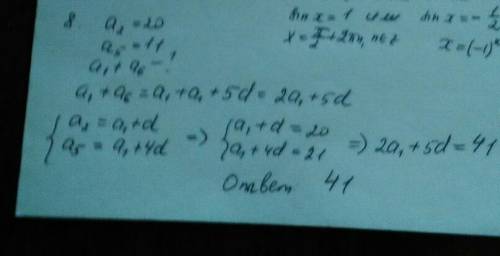 8. a₂ = 20
a₅ = 11
a₁ + a₆ - ?
sin x = 1 или sin x = - 1/2
x = π/2 + 2πn, n∈Z x = (-1)ⁿ
a₁ + a₆ = a₁ + a₁ + 5d = 2a₁ + 5d
{ a₂ = a₁ + d => { a₁ + d = 20 => 2a₁ + 5d = 41
a₅ = a₁ + 4d a₁ + 4d = 21
Ответ 41